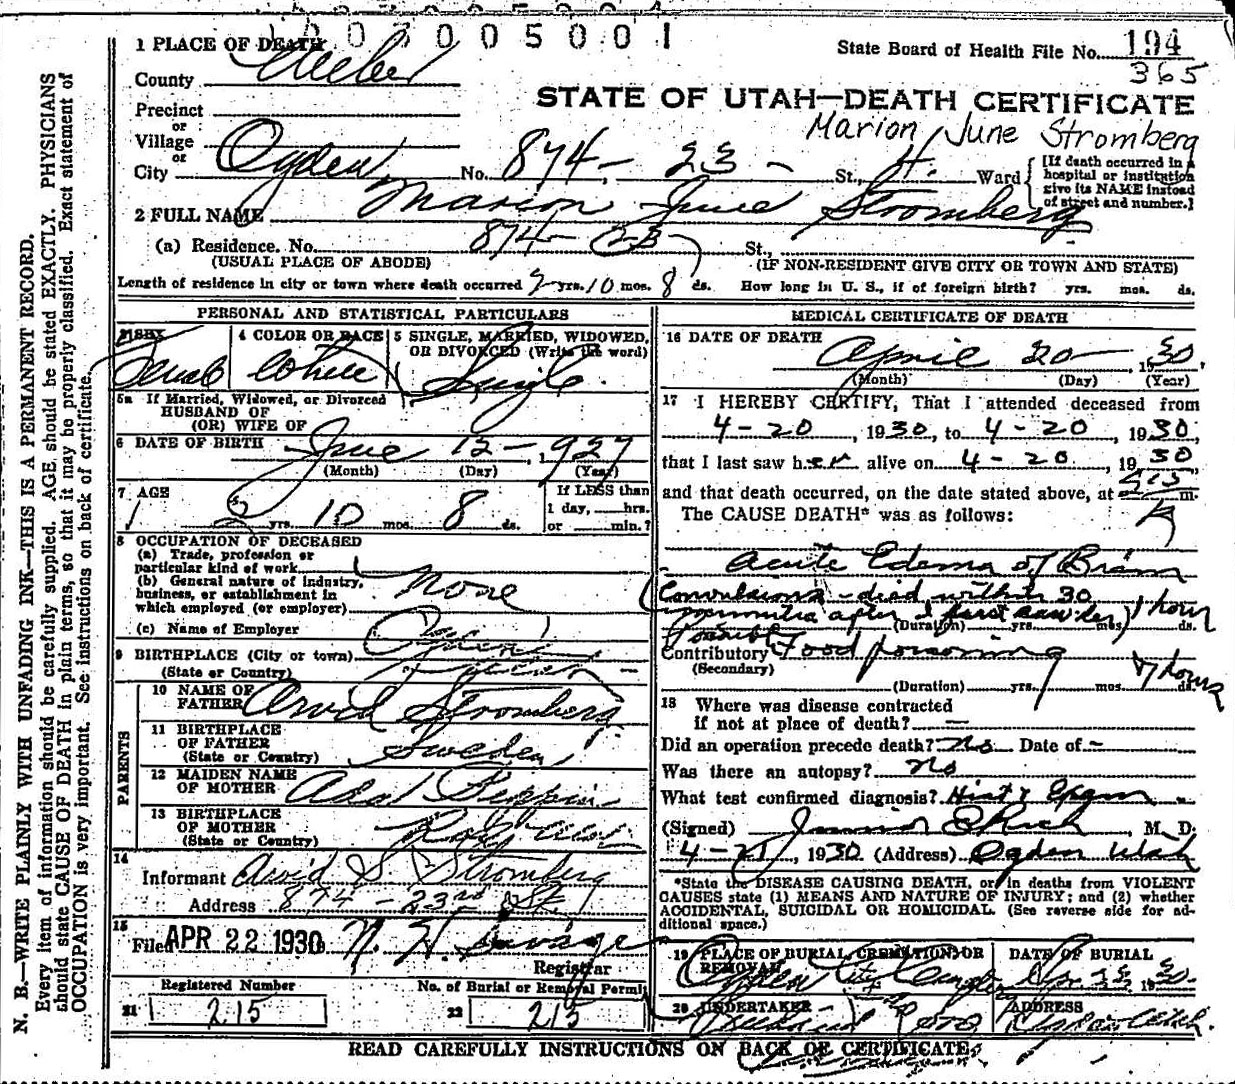 0 0 3 0 0 5 0 0 1
State Board of Health File No. 194
365
1 PLACE OF DEATH
County Weber
STATE OF UTAH—DEATH CERTIFICATE
Precinct
or
Marion June Stromberg
Village
or
City Ogden No. 874 - 23 - St., Ward
[If death occurred in a
hospital or institution
give its NAME instead
of street and number.]
2 FULL NAME Marion June Stromberg
(a) Residence. No. 874 - 23 St.,
(USUAL PLACE OF ABODE) (IF NON-RESIDENT GIVE CITY OR TOWN AND STATE)
Length of residence in city or town where death occurred 2 yrs. 10 mos. 8 ds. How long in U. S., if of foreign birth? yrs. mos. ds.
PERSONAL AND STATISTICAL PARTICULARS
3 SEX 4 COLOR OR RACE 5 SINGLE, MARRIED, WIDOWED,
OR DIVORCED (Write the word)
Female White Single.
5a If Married, Widowed, or Divorced
HUSBAND OF
(OR) WIFE OF
6 DATE OF BIRTH June 12 - 1927
(Month) (Day) (Year)
7 AGE If LESS than
2 yrs. 10 mos. 8 ds. 1 day, hrs.
or min.?
8 OCCUPATION OF DECEASED
(a) Trade, profession or
particular kind of work
(b) General nature of industry,
business, or establishment in
which employed (or employer) None
(c) Name of Employer
9 BIRTHPLACE (City or town) Ogden
(State or Country)
PARENTS
10 NAME OF
FATHER Arvid Stromberg
11 BIRTHPLACE
OF FATHER
(State or Country) Sweden
12 MAIDEN NAME
OF MOTHER
13 BIRTHPLACE
OF MOTHER
(State or Country)
14
Informant Arvid S Stromberg
Address 874 - 23rd St.
15
Filed APR 22 1930 N. H. Savage
Registrar
Registered Number No. of Burial or Removal Permit
21 215 22 215
MEDICAL CERTIFICATE OF DEATH
16 DATE OF DEATH
April 20 - , 1930.
(Month) (Day) (Year)
17 I HEREBY CERTIFY, That I attended deceased from
4-20, 1930, to 4-20, 1930,
that I last saw her alive on 4-20, 1930
and that death occurred, on the date stated above, at 915 m.
The CAUSE DEATH* was as follows:
Acute Edema of Brain
(Convulsions - died within 30
minutes after I first saw her) 1 hour
(Duration) yrs. mos. ds.
Possibly
Contributory Food poisoning
(Secondary) 7 hours
(Duration) yrs. mos. ds.
18 Where was disease contracted
if not at place of death? —
Did an operation precede death? No Date of -
Was there an autopsy? no
What test confirmed diagnosis? Hist & Exam
(Signed) Rich, M. D.
4-21, 1930 (Address) Ogden Utah
*State the DISEASE CAUSING DEATH, or in deaths from VIOLENT
CAUSES state (1) MEANS AND NATURE OF INJURY; and (2) whether
ACCIDENTAL, SUICIDAL OR HOMICIDAL. (See reverse side for ad-
ditional space.)
19 PLACE OF BURIAL, CREMATION OR DATE OF BURIAL
REMOVAL
Ogden City 1930.
20 UNDERTAKER ADDRESS
Ogden Utah.
READ CAREFULLY INSTRUCTIONS ON BACK OF CERTIFICATE.
N. B.—WRITE PLAINLY WITH UNFADING INK—THIS IS A PERMANENT RECORD.
Every item of information should be carefully supplied. AGE should be stated EXACTLY. PHYSICIANS
should state CAUSE OF DEATH in plain terms, so that it may be properly classified. Exact statement of
OCCUPATION is very important. See instructions on back of certificate.